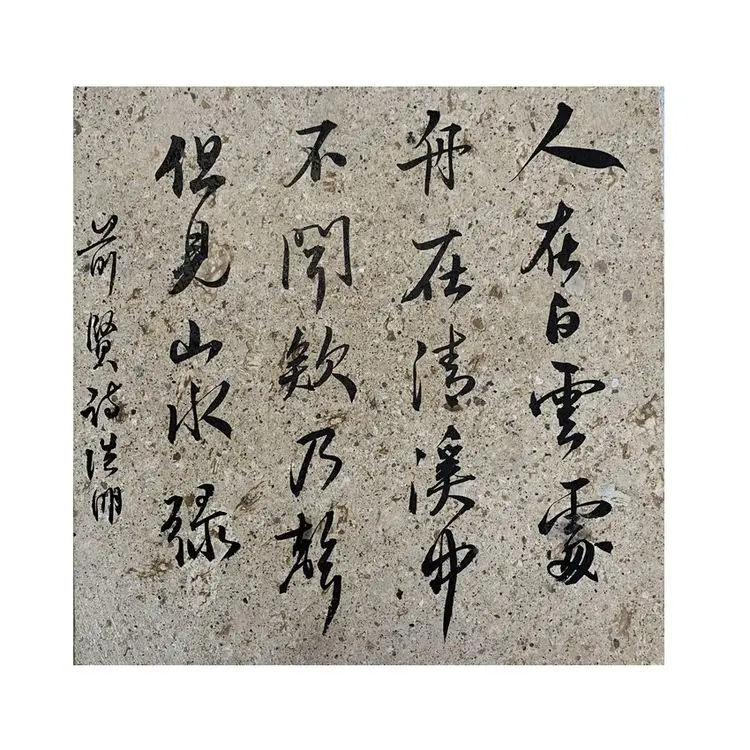 人在白雲處
舟在清溪中
不聞欸乃聲
但見山水綠
前賢詩浩明